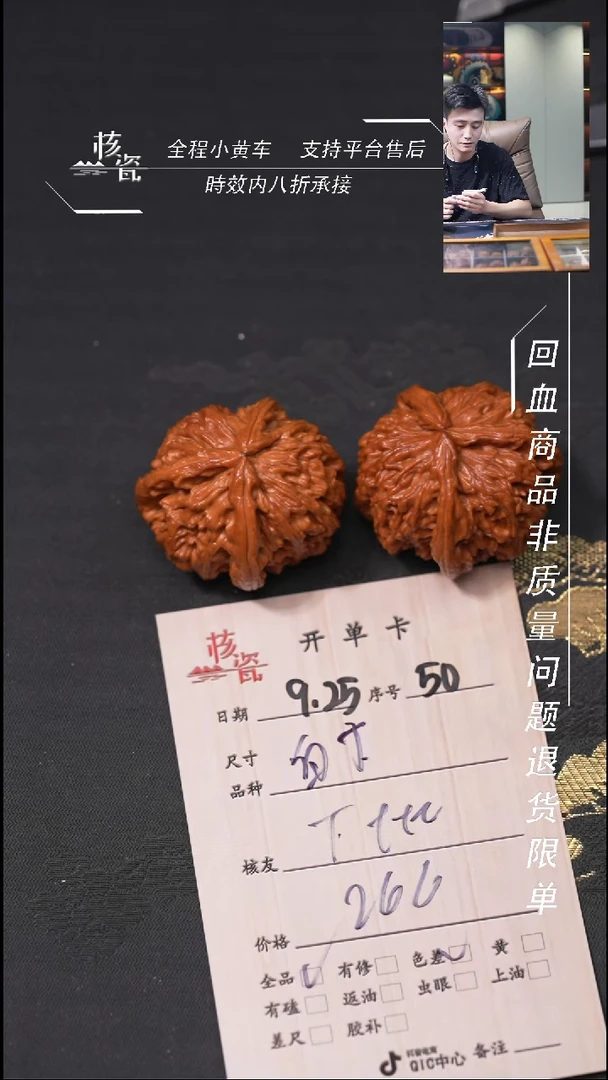 核瓷
全程小黄车 支持平台售后
時效内八折承接
回血商品非质量问题退货限单
核瓷
开单卡
日期 9.25 序号 50
尺寸
品种
核友
价格 266
全品 有修 色差 黄
有磕 返油 虫眼 上油
差尺 胶补
抖音电商
QIC中心 备注